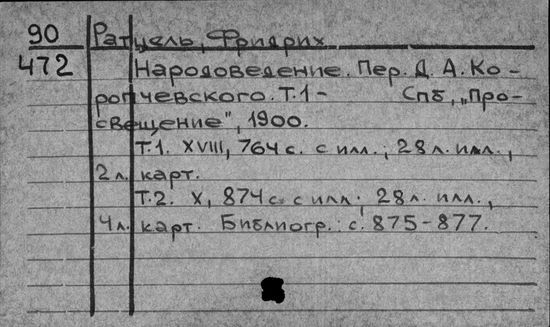 90 Ратцель, Фридрих
472 Народоведение. Пер. Д. А. Ко-
ропчевского. Т.1- Спб, „Про-
свещение", 1900.
Т.1. XVIII, 764 с. с илл.; 28 л. илл.,
2 л. карт.
Т.2. X, 874 с. с илл; 28 л. илл.,
4 л. карт. Библиогр.: с. 875-877.